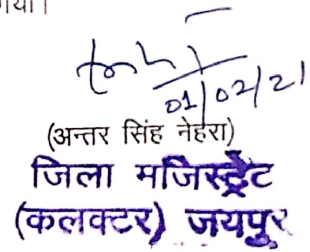 गया।
01/02/21
(अन्तर सिंह नेहरा)
जिला मजिस्ट्रेट
(कलक्टर) जयपुर